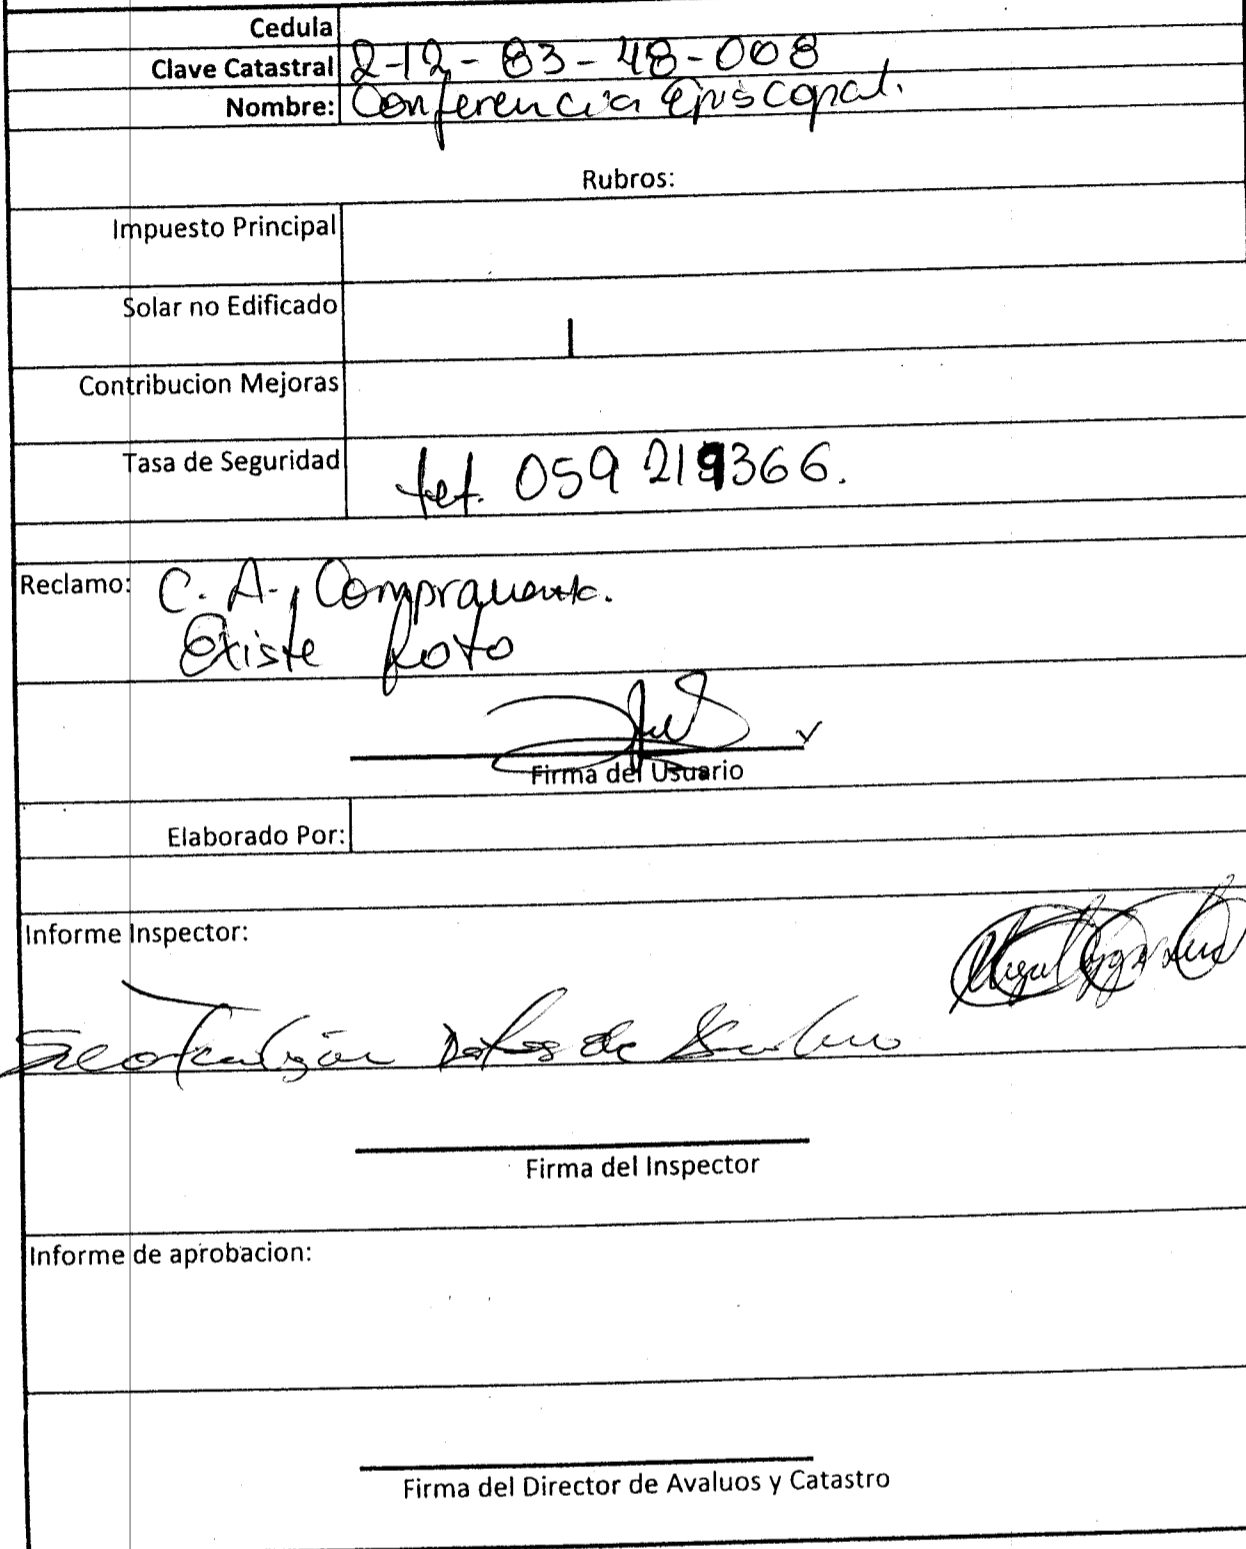 Cedula
Clave Catastral 2-12-83-48-008
Nombre: Conferencia Episcopal.
Rubros:
Impuesto Principal
Solar no Edificado
Contribucion Mejoras
Tasa de Seguridad telf. 059 219366.
Reclamo: C. A., Compraventa.
Existe foto
Firma del Usuario
Elaborado Por:
Informe Inspector:
datos de
Firma del Inspector
Informe de aprobacion:
Firma del Director de Avaluos y Catastro